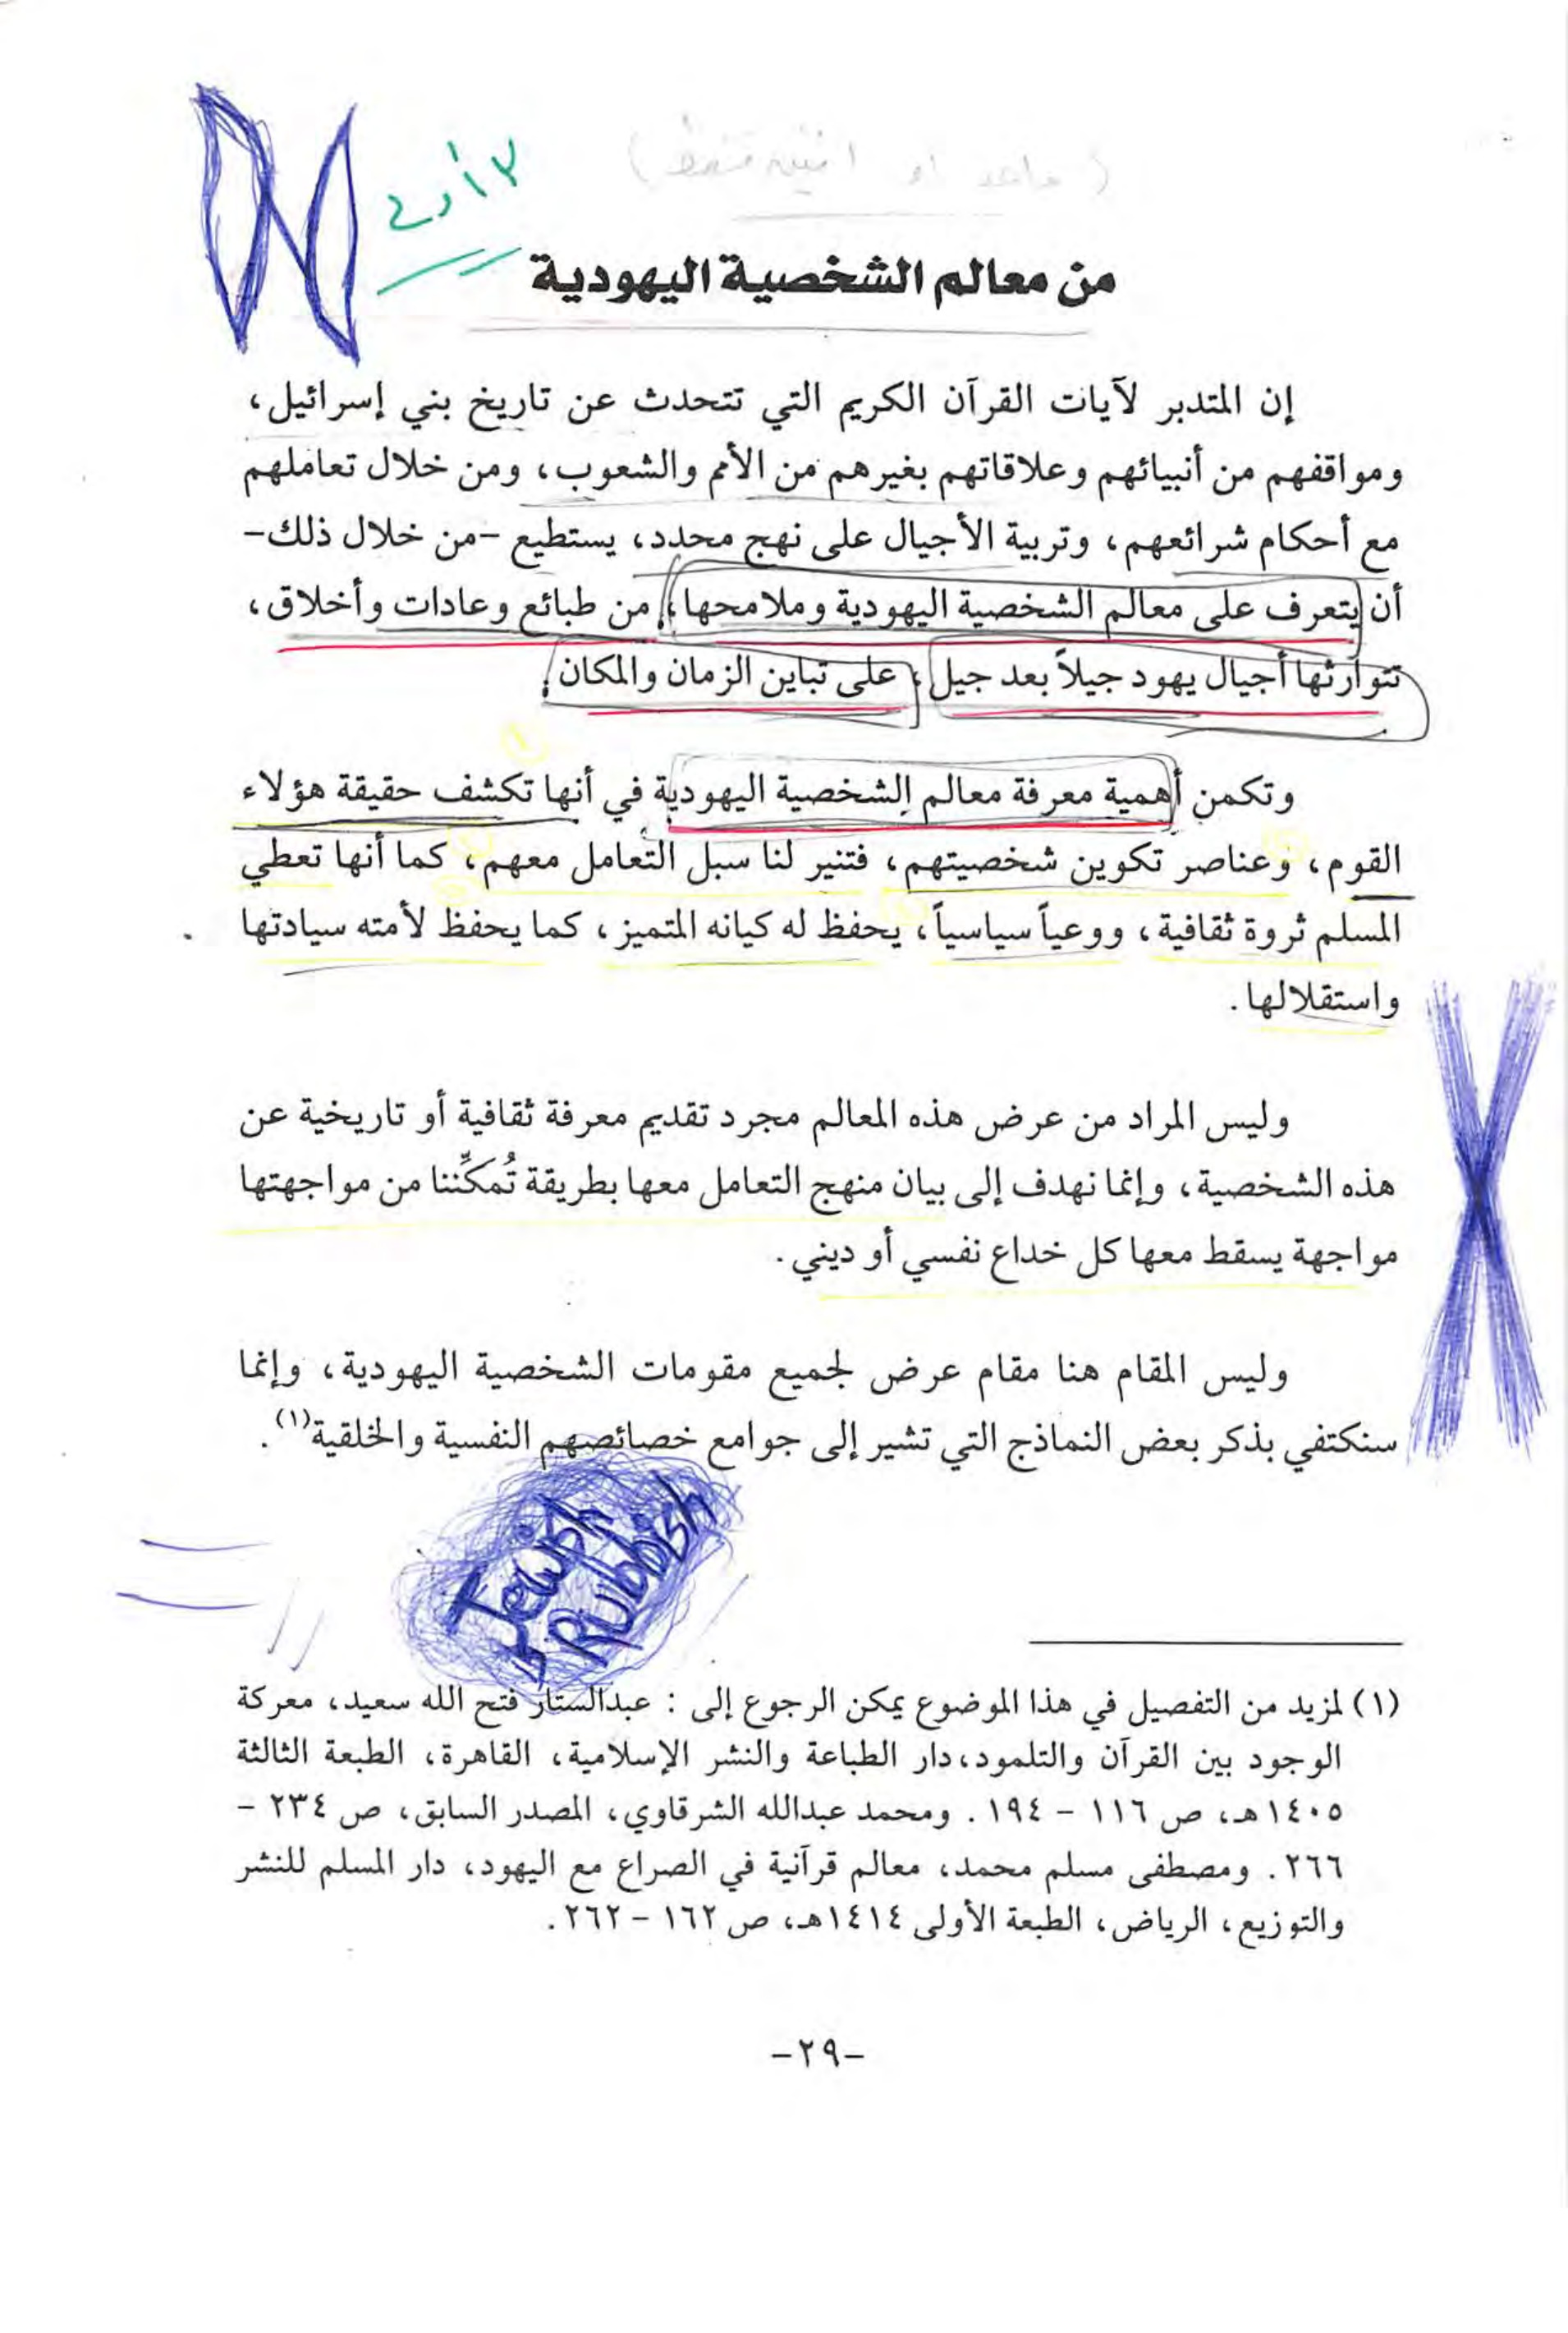 (واحد او اثنين فقط)
من معالم الشخصية اليهودية
إن المتدبر لآيات القرآن الكريم التي تتحدث عن تاريخ بني إسرائيل،
ومواقفهم من أنبيائهم وعلاقاتهم بغيرهم من الأمم والشعوب، ومن خلال تعاملهم
مع أحكام شرائعهم، وتربية الأجيال على نهج محدد، يستطيع -من خلال ذلك-
أن يتعرف على معالم الشخصية اليهودية وملامحها، من طبائع وعادات وأخلاق،
تتوارثها أجيال يهود جيلاً بعد جيل، على تباين الزمان والمكان.
وتكمن أهمية معرفة معالم الشخصية اليهودية في أنها تكشف حقيقة هؤلاء
القوم، وعناصر تكوين شخصيتهم، فتنير لنا سبل التعامل معهم، كما أنها تعطي
المسلم ثروة ثقافية، ووعياً سياسياً، يحفظ له كيانه المتميز، كما يحفظ لأمته سيادتها
واستقلالها.
وليس المراد من عرض هذه المعالم مجرد تقديم معرفة ثقافية أو تاريخية عن
هذه الشخصية، وإنما نهدف إلى بيان منهج التعامل معها بطريقة تُمكِّننا من مواجهتها
مواجهة يسقط معها كل خداع نفسي أو ديني.
وليس المقام هنا مقام عرض لجميع مقومات الشخصية اليهودية، وإنما
سنكتفي بذكر بعض النماذج التي تشير إلى جوامع خصائصهم النفسية والخلقية(١).
Jewish
is Rubbish
(١) لمزيد من التفصيل في هذا الموضوع يمكن الرجوع إلى : عبدالستار فتح الله سعيد، معركة
الوجود بين القرآن والتلمود،دار الطباعة والنشر الإسلامية، القاهرة، الطبعة الثالثة
١٤٠٥هـ، ص ١١٦ - ١٩٤ . ومحمد عبدالله الشرقاوي، المصدر السابق، ص ٢٣٤ -
٢٦٦. ومصطفى مسلم محمد، معالم قرآنية في الصراع مع اليهود، دار المسلم للنشر
والتوزيع، الرياض، الطبعة الأولى ١٤١٤هـ، ص ١٦٢ - ٢٦٢.
-٢٩-